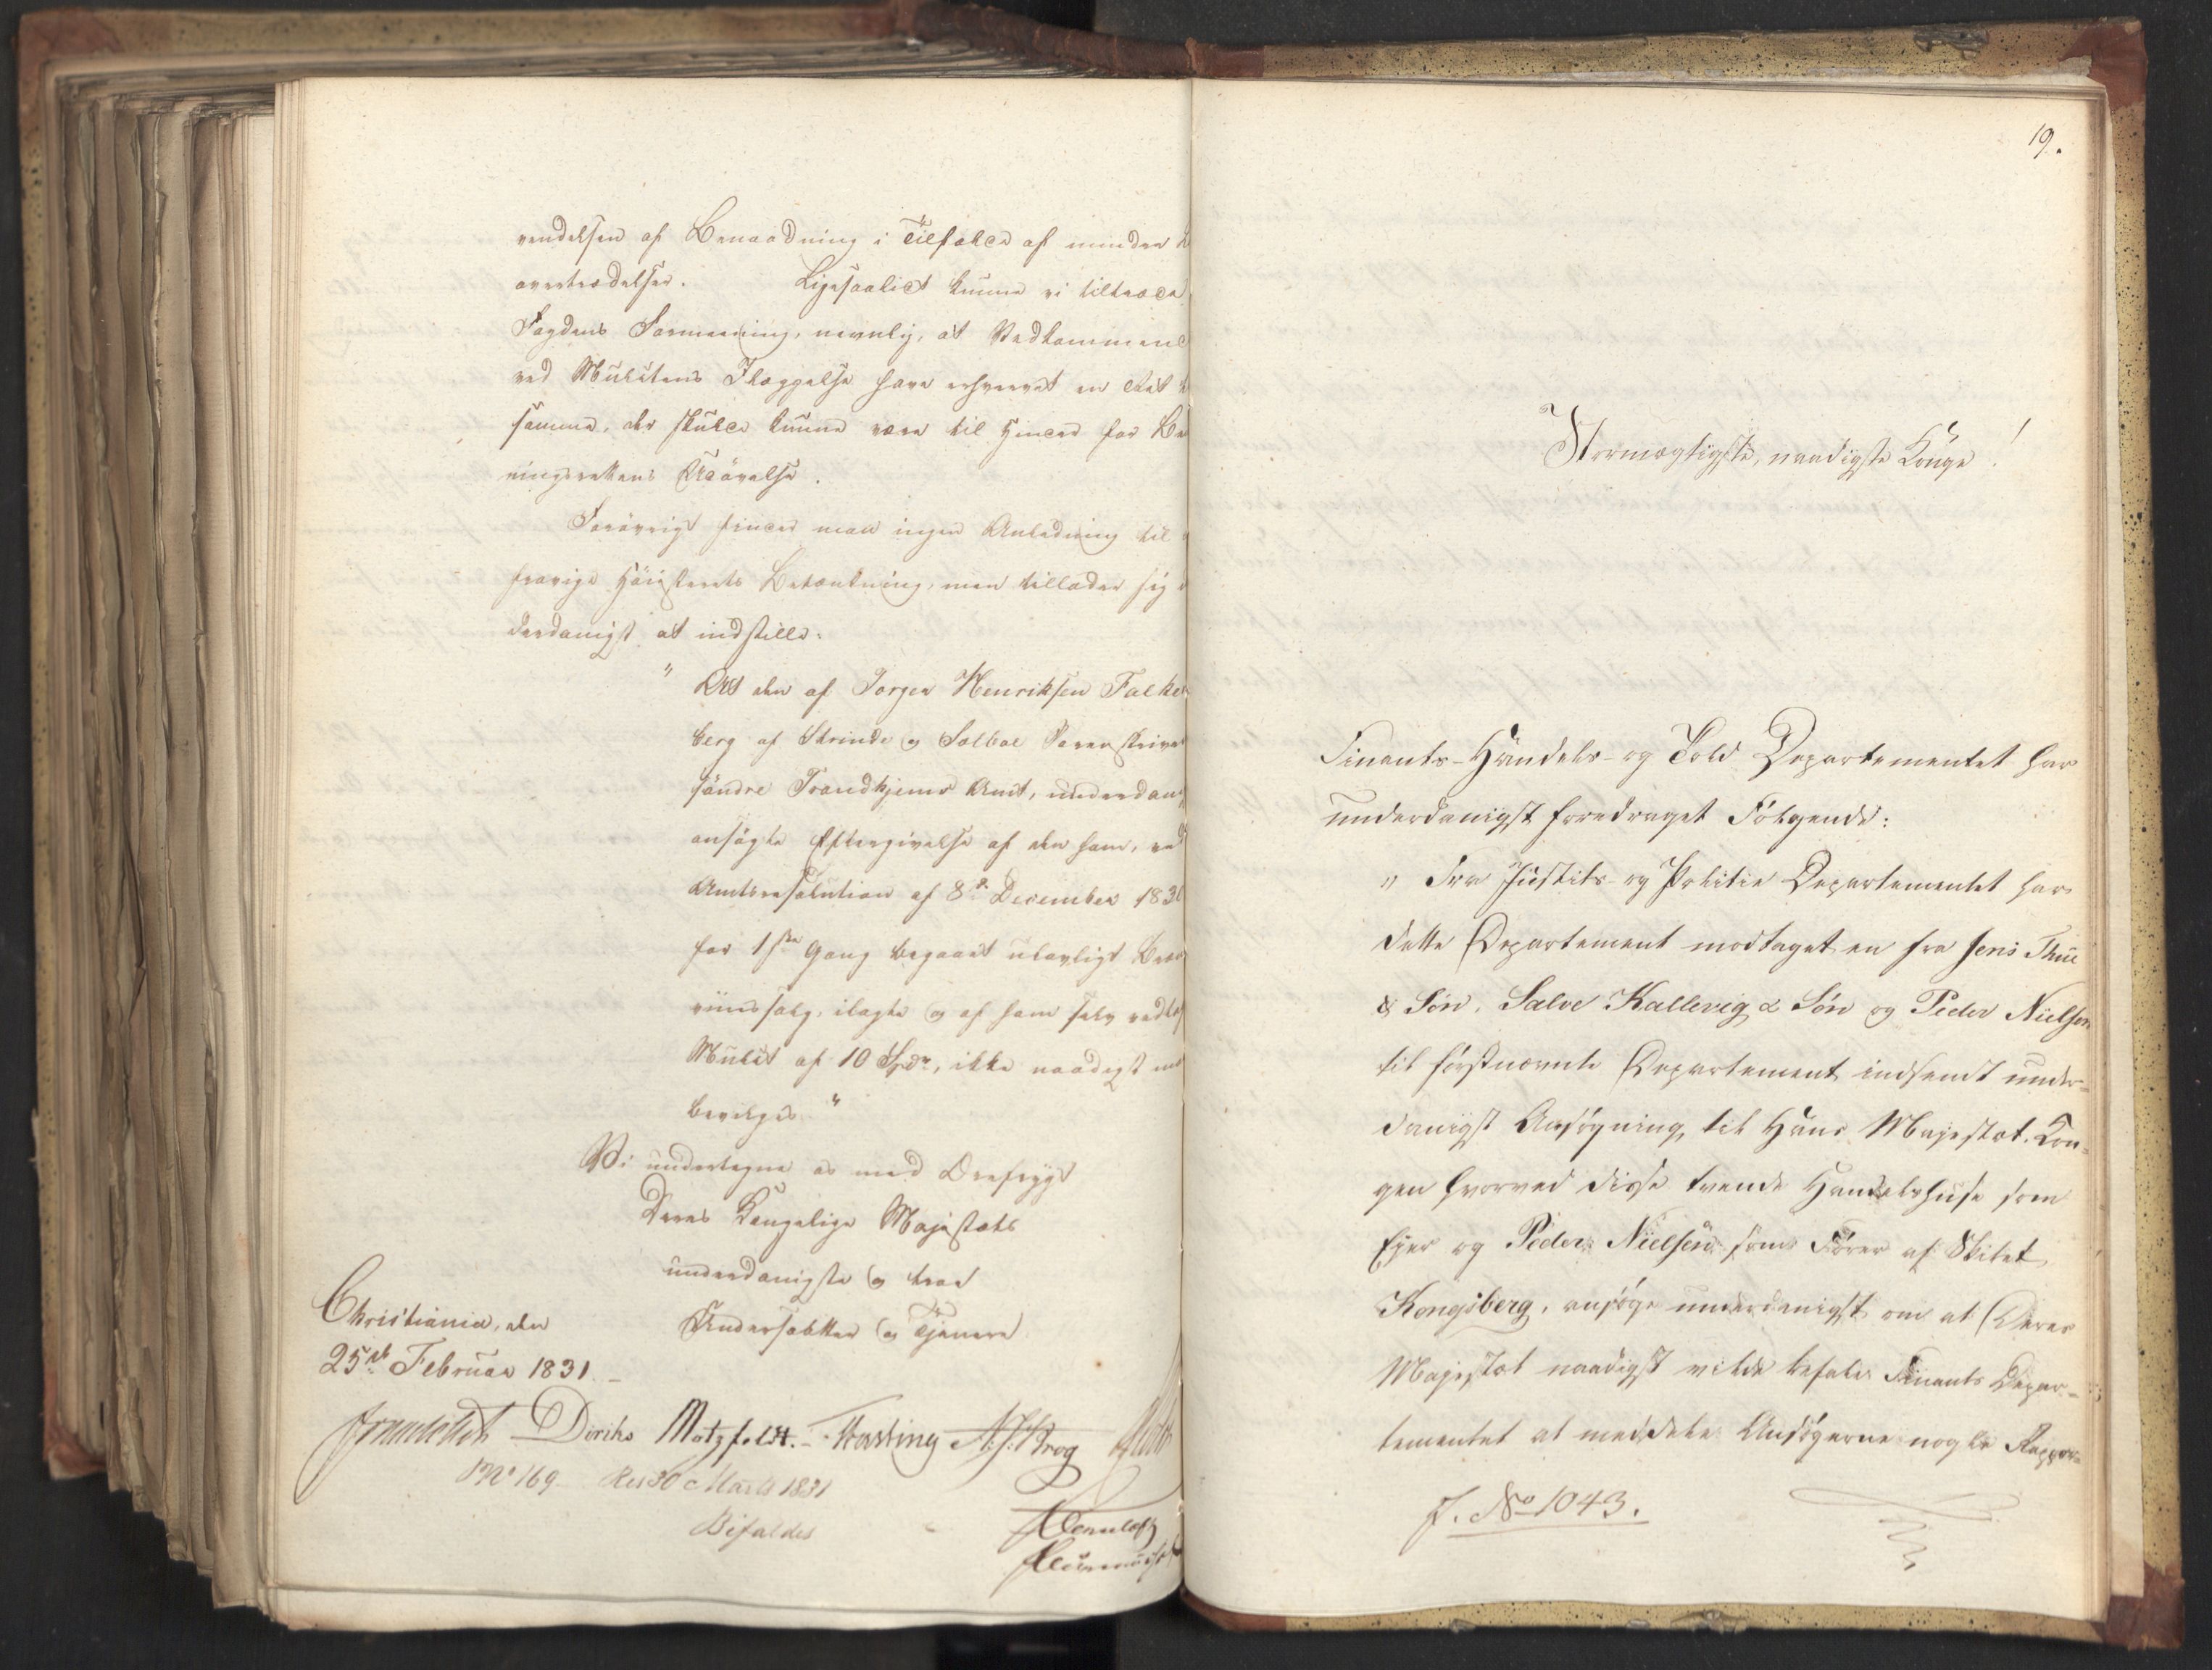 vendelsen af Benaadning i Tilfælde af mindre
overtrædelser. Ligesaalidt kunne vi tiltræde
Fogdens Formening, nemlig, at Vedkommend
ved Mulctens Ilæggelse have erhvervet en Ret
samme, der skulde kunne være til Hinder for Be
ningsrettens Udövelse.
Forövrigt finder man ingen Anledning til
fravige Höiesterets Betænkning, men tillader sig
derdanigst at indstille:
" At den af Jørgen Henriksen Falke
berg af Strinde og Sælboe Sorenskrive
söndre Trondhjems Amt, underdan
ansögte Eftergivelse af den ham, ved
Amtsresolution af 8de December 1830
for 1ste Gang begaaet ulovligt Bræn
viinssalg, ilagte og af ham selv vedta
Mulct af 10 Spdr, ikke naadigst
bevilges "
Vi undertegne os med Ærefrygt
Deres Kongelige Majestæts
underdanigste og troe
Undersaatter og Tjenere
Christiania, den
25de Februar 1831.
Diriks Motzfeldt. Fasting Krog
No 169. Res 30 Marts 1831
Bifaldes
19.
Stormægtigste, naadigste Konge!
Finants-Handels- og Told Departementet har
underdanigst foredraget Fölgende:
" Fra Justits- og Politie Departementet har
dette Departement modtaget en fra Jens Thue
& Sön, Salve Kallevig & Sön og Peder Nielsen
til förstnævnte Departement indsendt under-
danigst Ansögning til Hans Majestæt Kon-
gen hvorved disse tvende Handelshuse som
Eyer og Peder Nielsen som Förer af Skibet
Kongsberg, ansöge underdanigst om at Deres
Majestæt naadigst vilde befale Finants Depar-
tementet at meddele Ansögerne nogle
J. No 1043.